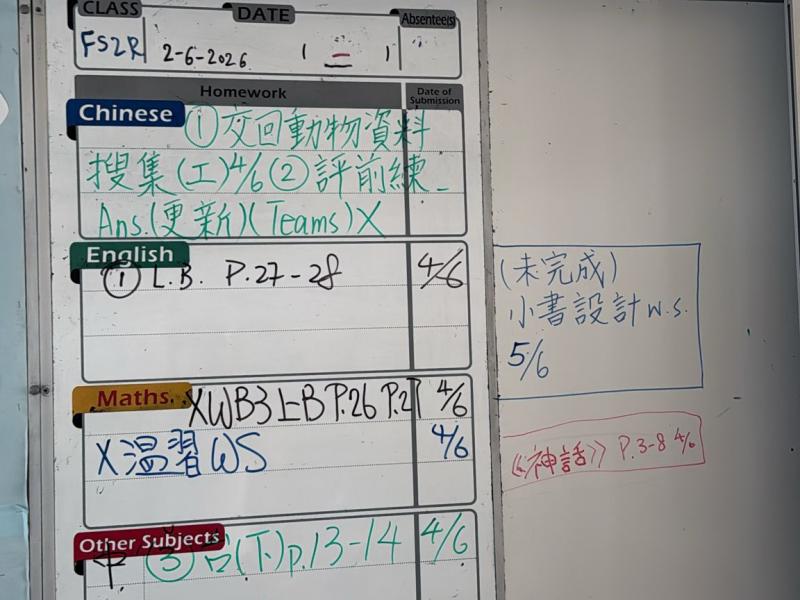 CLASS
DATE
Absentee(s)
FS2R
2-6-2026
( 二 )
Homework
Date of Submission
Chinese
① 交回動物資料
搜集(工)4/6 ② 評前練_
Ans.(更新)(Teams)X
English
① L.B. P.27-28 4/6
Maths
XWB3上B P.26 P.27 4/6
X 溫習WS 4/6
Other Subjects
中 ③ (下)p.13-14 4/6
(未完成)
小書設計 W.S.
5/6
《神話》 P.3-8 4/6